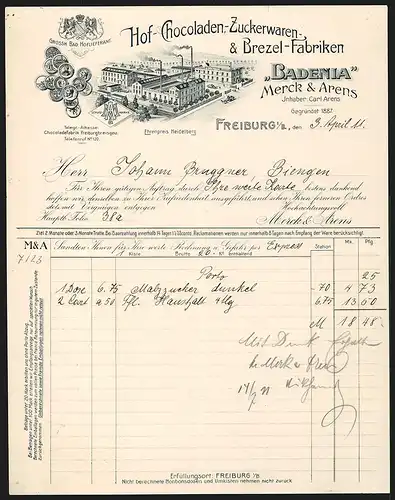 GROSSH. BAD. HOFLIEFERANT
Hof-Chocoladen-, Zuckerwaren-,
& Brezel-Fabriken
„BADENIA“
Merck & Arens
Jnhaber: Carl Arens
Gegründet 1887.
Telegr.-Adresse:
Chocoladefabrik Freiburgbreisgau.
Telephonruf No 120.
Ehrenpreis Heidelberg
FREIBURG i/B., den 3. April 11.
Herr Johann Bruggner, Biengen
Für Ihren gütigen Auftrag durch Ihre werte Karte bestens dankend
hoffen wir denselben zu Ihrer Zufriedenheit ausgeführt und sehen Ihren ferneren Ordres
stets mit Vergnügen entgegen
Hochachtungsvoll
Haupth. Folio 38a
Merck & Arens
Ziel 2 Monate oder 3 Monate Tratte. Bei Baarzahlung innerhalb 14 Tagen 1½% Sconto. Reclamationen werden nur innerhalb 8 Tagen nach Empfang der Ware berücksichtigt.
M&A
Sandten Ihnen für Ihre werte Rechnung u. Gefahr per Express
Station
Mk.
Pfg.
7123
1 Kiste Brutto 20 Ko Enthaltend
Porto 25
1 Dose 6.75 Malzzucker dunkel -.70 4 73
2 a 50 Pfl. 6.75 13 50
M 18 48
Mit Dank
Merck
Erfüllungsort: FREIBURG i/B
Nicht berechnete Bonbonsdosen und Umkisten nehmen nicht zurück